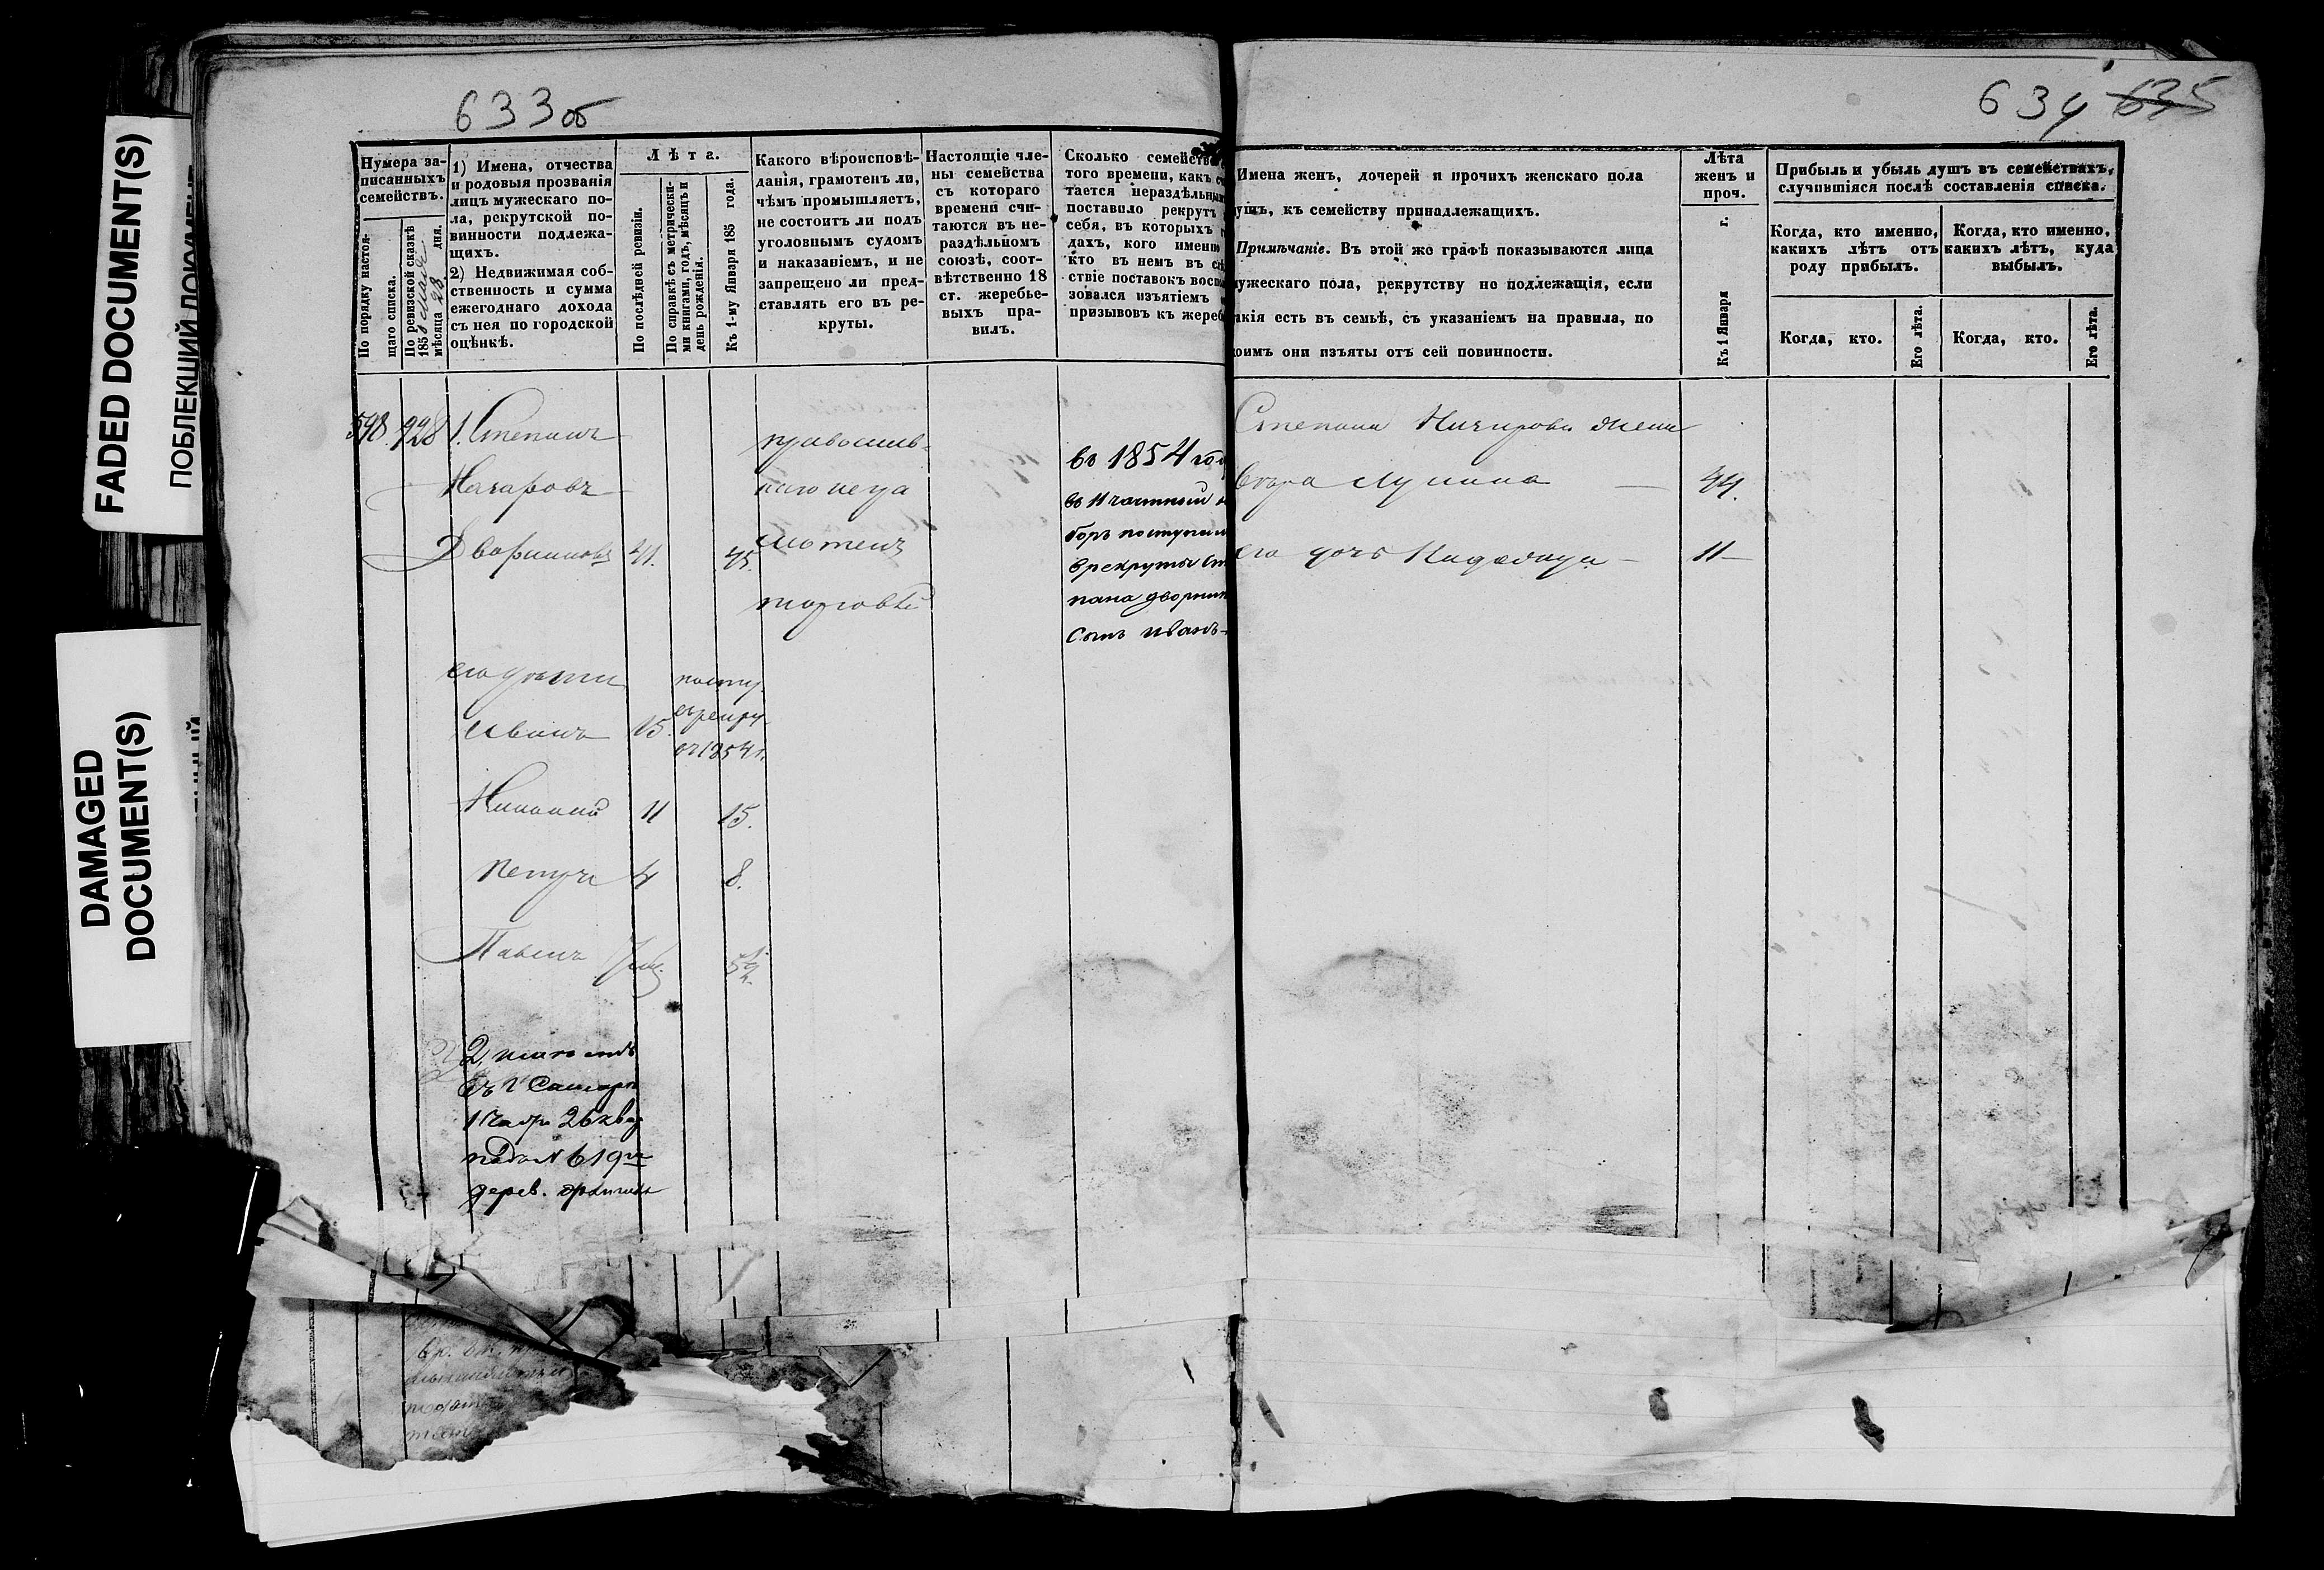 FADED DOCUMENT(S)
ПОБЛЕКШИЙ ДОКУМЕНТ
DAMAGED
DOCUMENT(S)
633 об
Нумера за-
писанныхъ
семействъ.
По порядку настоя-
щаго списка.
По ревизской сказкѣ
185
мѣсяца 28 дня.
1) Имена, отчества
и родовыя прозванія
лицъ мужескаго по-
ла, рекрутской по-
винности подлежа-
щихъ.
2) Недвижимая соб-
ственность и сумма
ежегоднаго дохода
съ нея по городской
оцѣнкѣ.
Лѣта.
По послѣдней ревизіи.
По справкѣ съ метрически-
ми книгами, годъ, мѣсяцъ и
день рожденія.
Къ 1-му Января 185 года.
Какого вѣроисповѣ-
данія, грамотенъ ли,
чѣмъ промышляетъ,
не состоитъ ли подъ
уголовнымъ судомъ
и наказаніемъ, и не
запрещено ли пред-
ставлять его въ ре-
круты.
Настоящіе чле-
ны семейства
съ котораго
времени счи-
таются въ не-
раздѣльномъ
союзѣ, соот-
вѣтственно 18
ст. жеребье-
выхъ пра-
вилъ.
Сколько семейство
того времени, какъ
тается нераздѣльнымъ
поставило рекрутъ
себя, въ которыхъ
дахъ, кого именно
кто въ немъ въ
ствіе поставокъ
зовался изъятіемъ
призывовъ къ
598. 928 1. Степанъ
Назаровъ
Дворниковъ 41. 45.
православ-
торговлей
въ 1854 год
въ 11 частный
боръ поступил
в рекруты
пана дворник
сынъ иванъ
его дѣти
Иванъ 15. посту.
в рекру.
въ 1854 г.
Николай 11 15.
Петръ 4 8.
Павелъ
въ г Самарѣ
1 части 26 квар
подъ N 619
дерев.
634 635
Имена женъ, дочерей и прочихъ женскаго пола
душъ, къ семейству принадлежащихъ.
Примѣчаніе. Въ этой же графѣ показываются лица
мужескаго пола, рекрутству не подлежащія, если
такія есть въ семьѣ, съ указаніемъ на правила, по
коимъ они изъяты отъ сей повинности.
Лѣта
женъ и
проч.
Къ 1 Января г.
Прибыль и убыль душъ въ семействахъ,
случившіяся послѣ составленія списка.
Когда, кто именно,
какихъ лѣтъ отъ
роду прибылъ.
Когда, кто именно,
какихъ лѣтъ, куда
выбылъ.
Когда, кто.
Его лѣта.
Когда, кто.
Его лѣта.
Степана Назарова жена
44.
его дочь Надежда 11